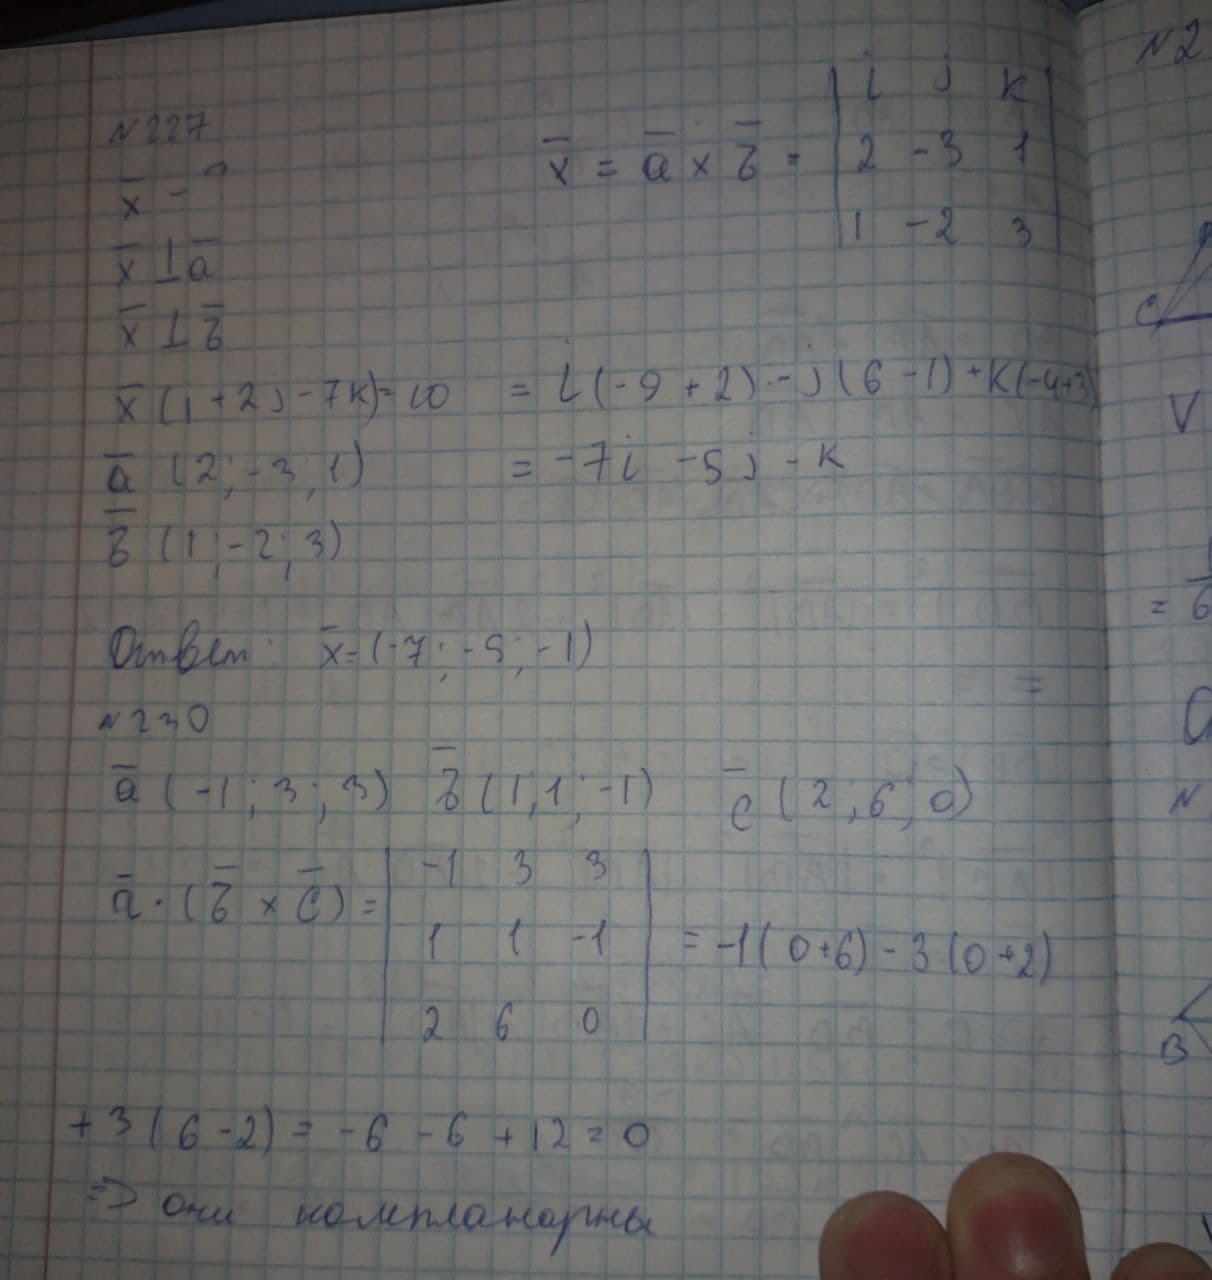 №227
x̄ - ?
x̄ ⊥ ā
x̄ ⊥ b̄
x̄ (i + 2j - 7k) = 10
ā (2; -3; 1)
b̄ (1; -2; 3)
x̄ = ā × b̄ = | i j k |
| 2 -3 1 |
| 1 -2 3 |
= i(-9 + 2) - j(6 - 1) + k(-4+3)
= -7i - 5j - k
Ответ: x̄ = (-7; -5; -1)
№230
ā (-1; 3; 3) b̄ (1; 1; -1) c̄ (2; 6; 0)
ā · (b̄ × c̄) = | -1 3 3 |
| 1 1 -1 |
| 2 6 0 |
= -1(0+6) - 3(0+2)
+ 3(6-2) = -6 - 6 + 12 = 0
=> они компланарны
№2
C
V
= 1/6
N
B